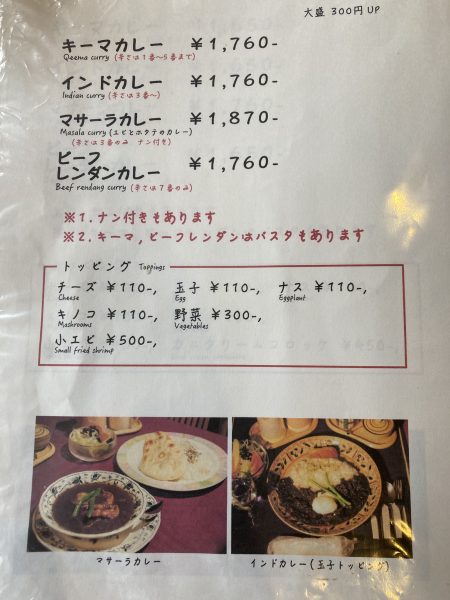 大盛 300円UP
キーマカレー ￥1,760-
Qeema curry (辛さは1番~5番まで)
インドカレー ￥1,760-
Indian curry (辛さは3番~)
マサーラカレー ￥1,870-
Masala curry (エビとホタテのカレー)
(辛さは3番のみ ナン付き)
ビーフ
レンダンカレー ￥1,760-
Beef rendang curry (辛さは7番のみ)
※1.ナン付きもあります
※2.キーマ,ビーフレンダンはパスタもあります
トッピング Toppings
チーズ ￥110-, 玉子 ￥110-, ナス ￥110-,
Cheese Egg Eggplant
キノコ ￥110-, 野菜 ￥300-,
Mashrooms Vegetables
小エビ ￥500-,
Small fried shrimp
マサーラカレー
インドカレー(玉子トッピング)